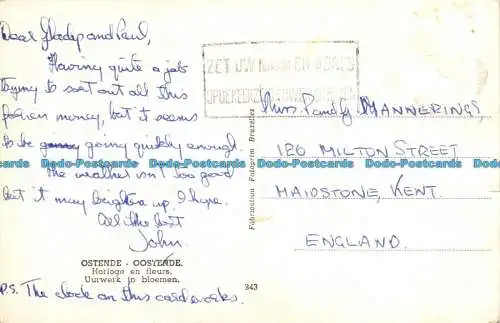 Dear Gladys and Paul,
Having quite a job
trying to sort out all this
foreign money, but it seems
to be going quickly enough.
The weather isn't too good
but it may brighten up I hope.
All the best
John.
OSTENDE - OOSTENDE.
Horloge en fleurs.
Uurwerk in bloemen.
P.S. The clock on this card works.
ZET UW NAAM EN ADRES
Fabrication Belge
Bruxelles
343
MANNERINGS,
120 MILTON STREET
MAIDSTONE, KENT.
ENGLAND.
Dodo-Postcards Dodo-Postcards Dodo-Postcards Dodo-Postcards Dodo-Postcards